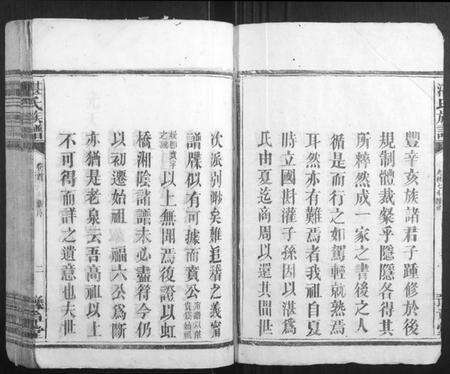 湛氏族譜
豐辛亥族諸君子踵修於後
規制體裁粲乎隱隱各得其
所粹然成一家之書後之人
循是而行之如駕輕就熟焉
耳然亦有難焉者我祖自夏
時立國斟灌子孫因以湛爲
氏由夏迄商周以還其間世
次派別渺矣難追藉之我甯
譜牒似有可據而實公
以上無聞焉後證以虹
橋湘陰諸譜未必盡符今仍
以初遷始祖 福六公爲斷
亦猶是老泉云吾高祖以上
不可得而詳之遺意也夫世
湛氏族譜
卷首
二